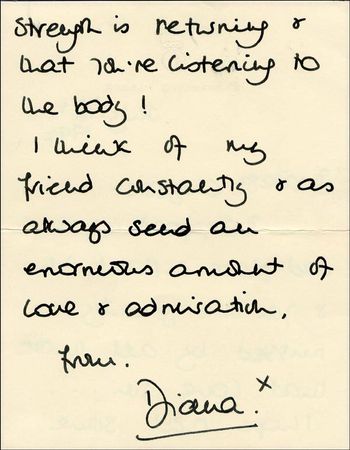 strength is returning &
that you're listening to
the body!
I think of my
friend constantly & as
always send an
enormous amount of
love & admiration,
from.
Diana. x